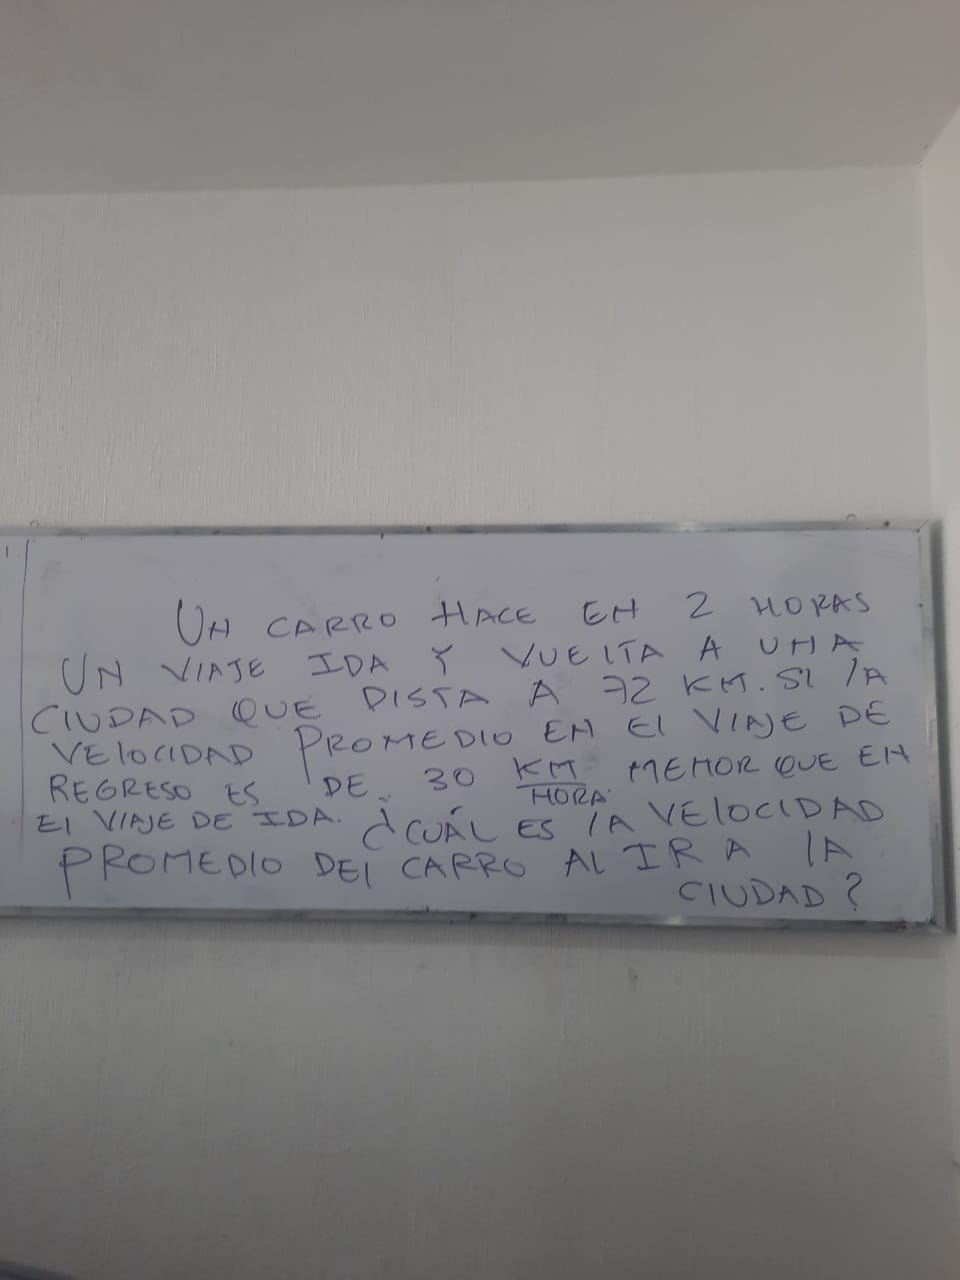 UN CARRO HACE EN 2 HORAS
UN VIAJE IDA Y VUELTA A UNA
CIUDAD QUE DISTA A 72 KM. SI LA
VELOCIDAD PROMEDIO EN EL VIAJE DE
REGRESO ES DE 30 KM/HORA MENOR QUE EN
EL VIAJE DE IDA. ¿CUÁL ES LA VELOCIDAD
PROMEDIO DEL CARRO AL IR A LA
CIUDAD?